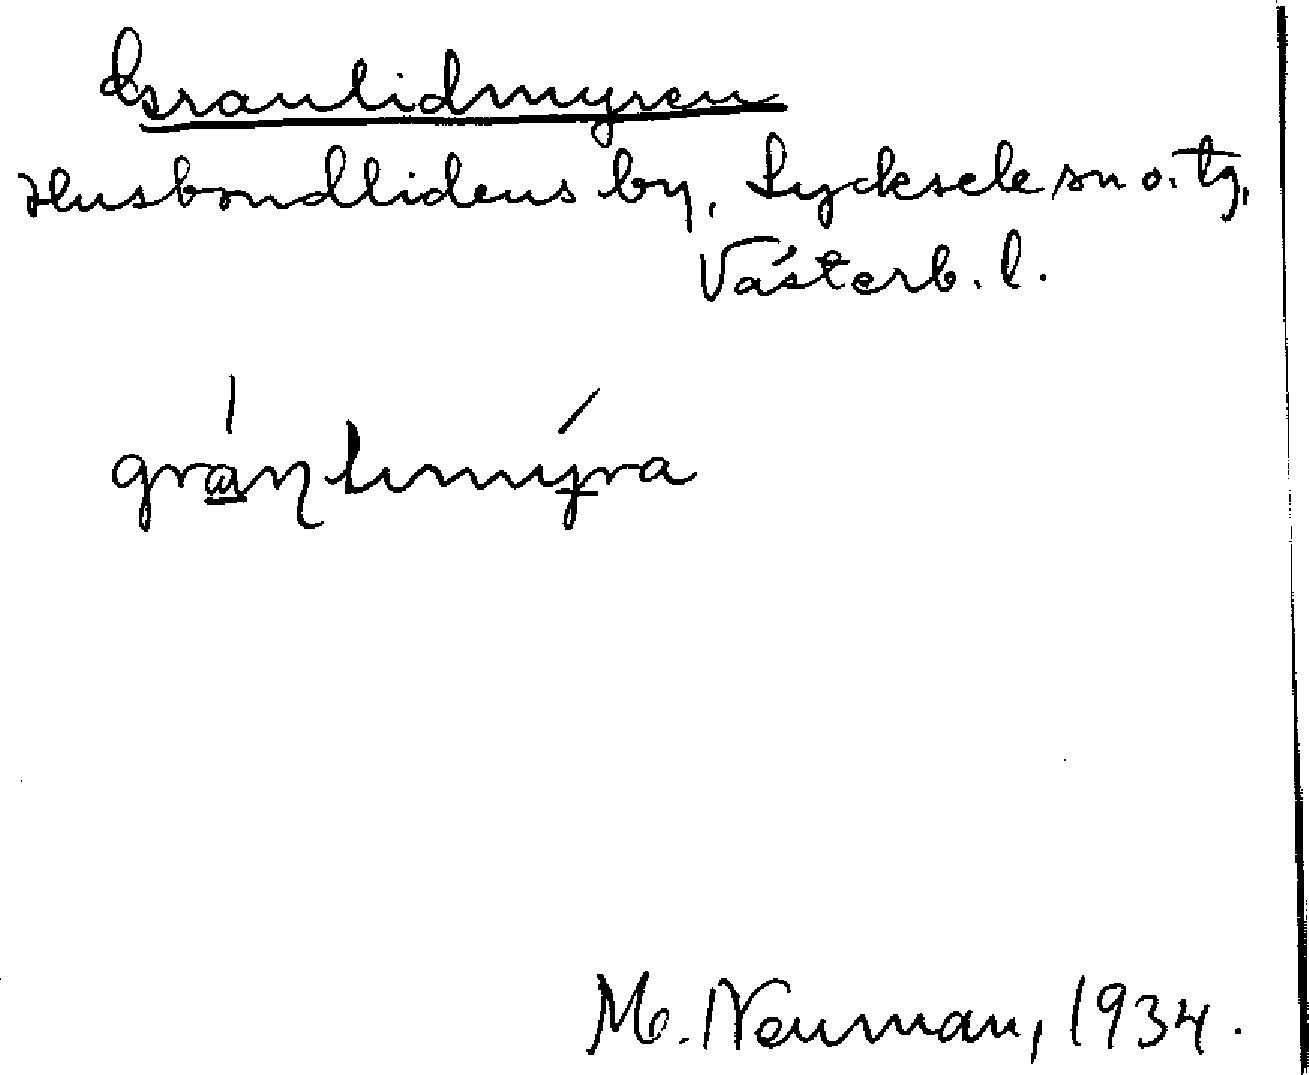 Granlidmyren
Husbondlidens by, Lycksele sn o. tg,
Västerb. l.
M. Neuman, 1934.